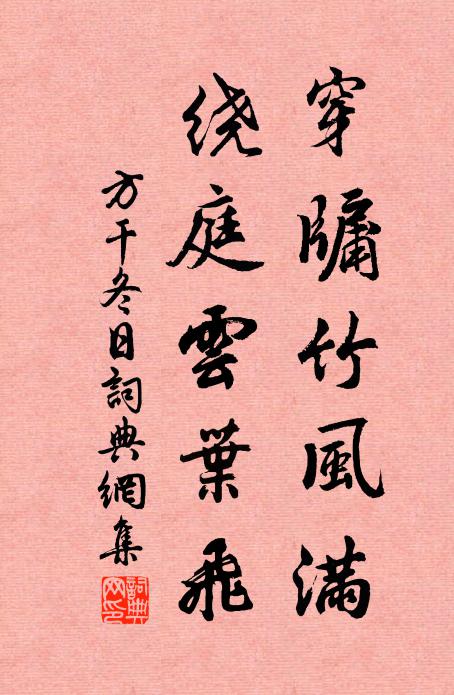 穿牗竹風满
绕庭雲葉飛
方干冬日詞典網集
詞典
网印